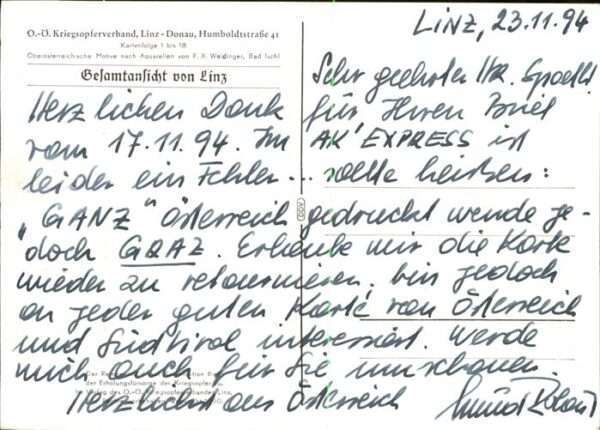 LINZ, 23.11.94
O.-Ö. Kriegsopferverband, Linz-Donau, Humboldtstraße 41
Kartenfolge 1 bis 18
Oberösterreichische Motive nach Aquarellen von F. X. Weidinger, Bad Ischl
Gesamtansicht von Linz
Sehr geehrter Hr.
Herzlichen Dank für Ihren Brief
vom 17.11.94. Im AK' EXPRESS ist
leider ein Fehler... sollte heißen:
„GANZ" Österreich gedruckt wurde je-
doch GRAZ. Erlaube mir die Karte
wieder zu retournieren. bin jedoch
an jeder guten Karte von Österreich
und Südtirol interessiert. Werde
mich auch für Sie umschauen.
der Erholungsfürsorge des Kriegsopfer
Verlag des O.-Ö. Kriegsopferverbandes Linz,
Herzlichst aus Österreich